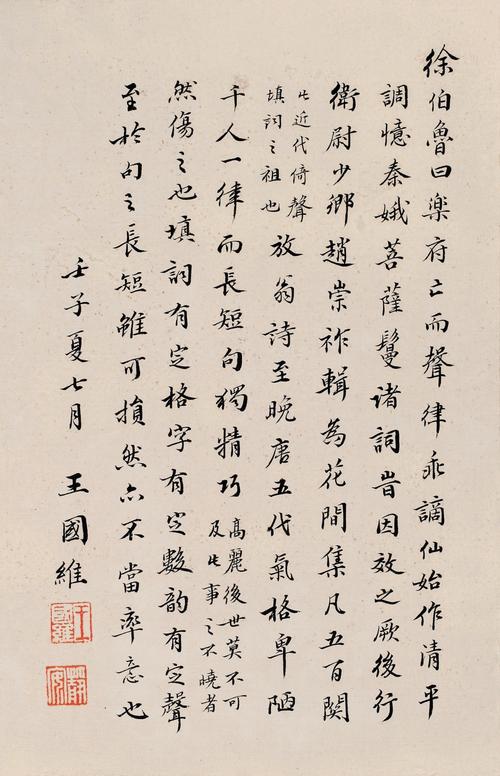 徐伯魯曰樂府亡而聲律乖謫仙始作清平
調憶秦娥菩薩鬘诸詞旹因效之厥後行
衛尉少卿趙崇祚輯為花間集凡五百闋
此近代倚聲
填詞之祖也
放翁詩至晚唐五代氣格卑陋
千人一律而長短句獨精巧
高麗後世莫不可
及此事之不曉者
然傷之也填詞有定格字有定數韵有定聲
至於句之長短雖可損然亦不當率意也
壬子夏七月
王國維
王國維
靜安